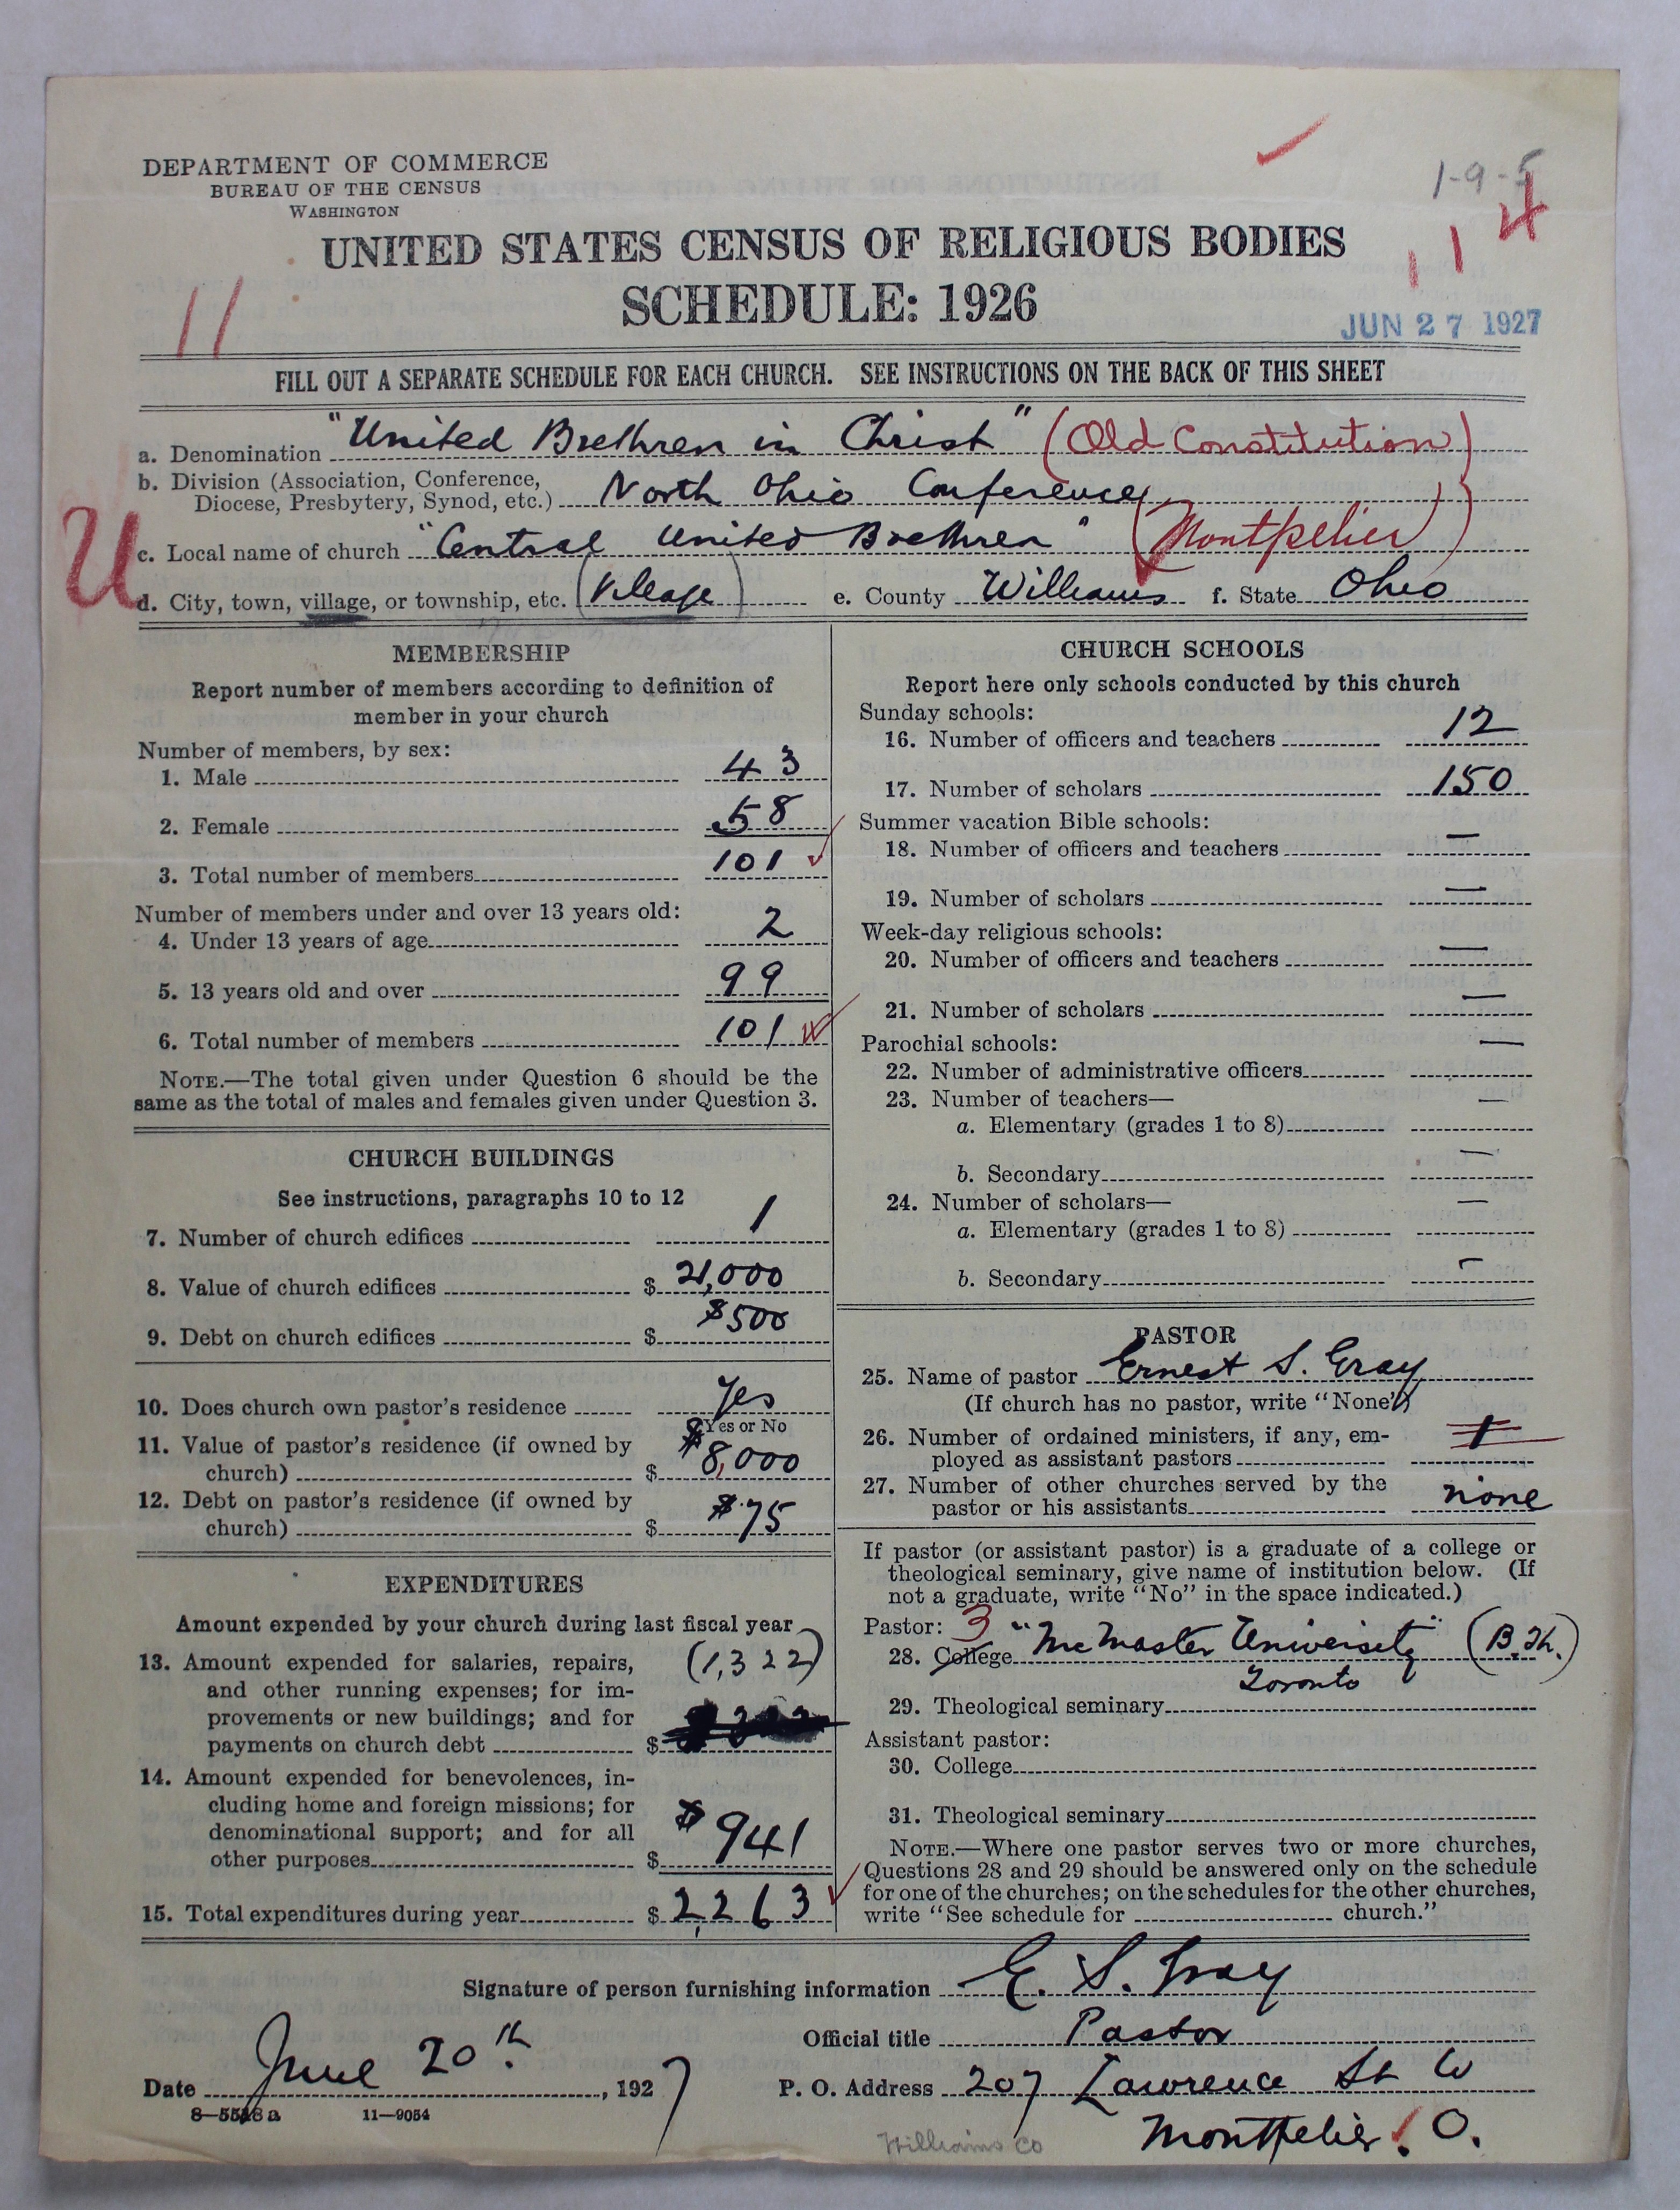 DEPARTMENT OF COMMERCE
BUREAU OF THE CENSUS
WASHINGTON
1-9-5
UNITED STATES CENSUS OF RELIGIOUS BODIES
1 1 4
11
SCHEDULE: 1926
JUN 27 1927
FILL OUT A SEPARATE SCHEDULE FOR EACH CHURCH. SEE INSTRUCTIONS ON THE BACK OF THIS SHEET
a. Denomination "United Brethren in Christ" (Old Constitution)
b. Division (Association, Conference,
Diocese, Presbytery, Synod, etc.) North Ohio Conference
U
c. Local name of church "Central United Brethren" (Montpelier)
d. City, town, village, or township, etc. (Village) e. County Williams f. State Ohio
MEMBERSHIP
Report number of members according to definition of
member in your church
Number of members, by sex:
1. Male 43
2. Female 58
3. Total number of members 101
Number of members under and over 13 years old:
4. Under 13 years of age 2
5. 13 years old and over 99
6. Total number of members 101
NOTE.—The total given under Question 6 should be the
same as the total of males and females given under Question 3.
CHURCH BUILDINGS
See instructions, paragraphs 10 to 12
7. Number of church edifices 1
8. Value of church edifices $ 21,000
9. Debt on church edifices $ $500
10. Does church own pastor's residence Yes
Yes or No
11. Value of pastor's residence (if owned by
church) $ $8,000
12. Debt on pastor's residence (if owned by
church) $ $75
EXPENDITURES
Amount expended by your church during last fiscal year
13. Amount expended for salaries, repairs, (1,322)
and other running expenses; for im-
provements or new buildings; and for
payments on church debt $
14. Amount expended for benevolences, in-
cluding home and foreign missions; for
denominational support; and for all
other purposes $ $941
15. Total expenditures during year $ 2,263
CHURCH SCHOOLS
Report here only schools conducted by this church
Sunday schools:
16. Number of officers and teachers 12
17. Number of scholars 150
Summer vacation Bible schools:
18. Number of officers and teachers —
19. Number of scholars —
Week-day religious schools:
20. Number of officers and teachers —
21. Number of scholars —
Parochial schools:
22. Number of administrative officers —
23. Number of teachers—
a. Elementary (grades 1 to 8) —
b. Secondary —
24. Number of scholars—
a. Elementary (grades 1 to 8) —
b. Secondary —
PASTOR
25. Name of pastor Ernest S. Gray
(If church has no pastor, write "None")
26. Number of ordained ministers, if any, em-
ployed as assistant pastors 1
27. Number of other churches served by the
pastor or his assistants none
If pastor (or assistant pastor) is a graduate of a college or
theological seminary, give name of institution below. (If
not a graduate, write "No" in the space indicated.)
Pastor: 3
28. College "McMaster University" (B.Th.)
Toronto
29. Theological seminary
Assistant pastor:
30. College
31. Theological seminary
NOTE.—Where one pastor serves two or more churches,
Questions 28 and 29 should be answered only on the schedule
for one of the churches; on the schedules for the other churches,
write "See schedule for church."
Signature of person furnishing information E. S. Gray
Official title Pastor
Date June 20th, 1927 P. O. Address 207 Lawrence St W
8—5518a 11—9054
Williams Co Montpelier, O.